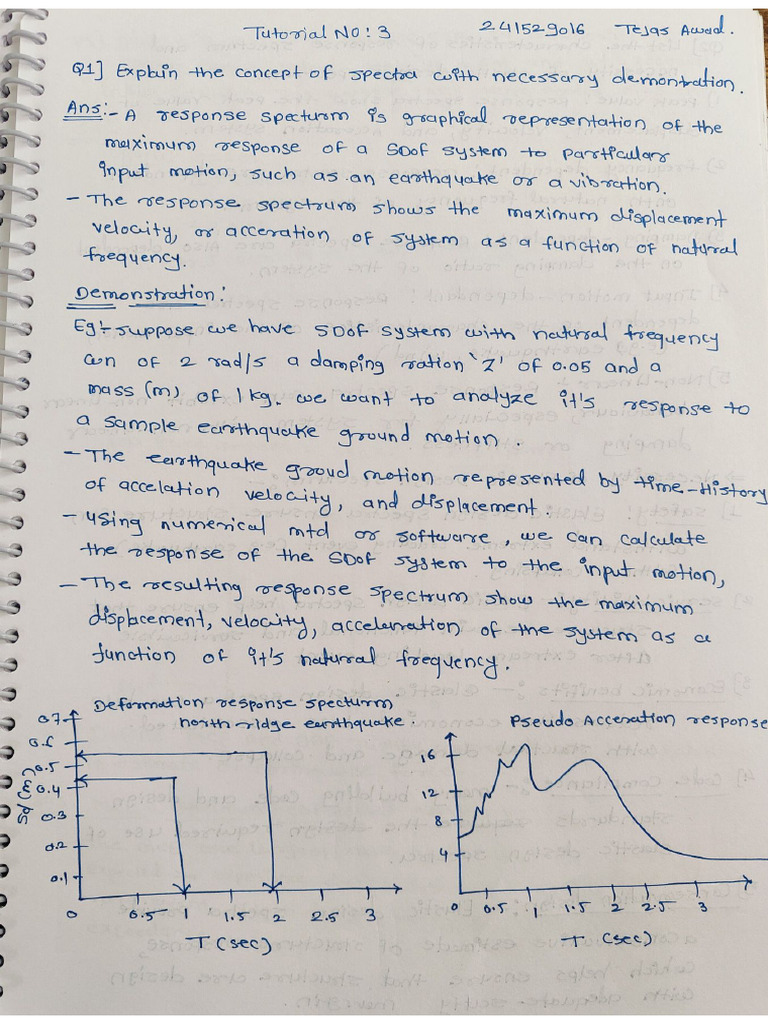 Tutorial NO: 3 241529016 Tejas Awad.
Q1] Explain the concept of spectra with necessary demontration.
Ans:- A response specturm is graphical representation of the
maximum response of a SDOF system to particular
input motion, such as an earthquake or a vibration.
- The response spectrum shows the maximum displacement
velocity, or acceration of system as a function of natural
frequency.
Demonstration:
Eg:- suppose we have SDOF system with natural frequency
ωn of 2 rad/s a damping ration 'Z' of 0.05 and a
mass (m) of 1 kg. we want to analyze it's response to
a sample earthquake ground motion.
- The earthquake groud motion represented by time-History
of accelation velocity, and displacement.
- Using numerical mtd or software, we can calculate
the response of the SDOF system to the input motion,
- The resulting response spectrum show the maximum
displacement, velocity, acceleration of the system as a
function of it's natural frequency.
Deformation response specturm
north ridge earthquake:
0.7
0.6
0.5
0.4
0.3
0.2
0.1
Sd (m)
0 0.5 1 1.5 2 2.5 3
T (sec)
Pseudo Acceration response
16
12
8
4
0 0.5 1 1.5 2 2.5 3
T (sec)